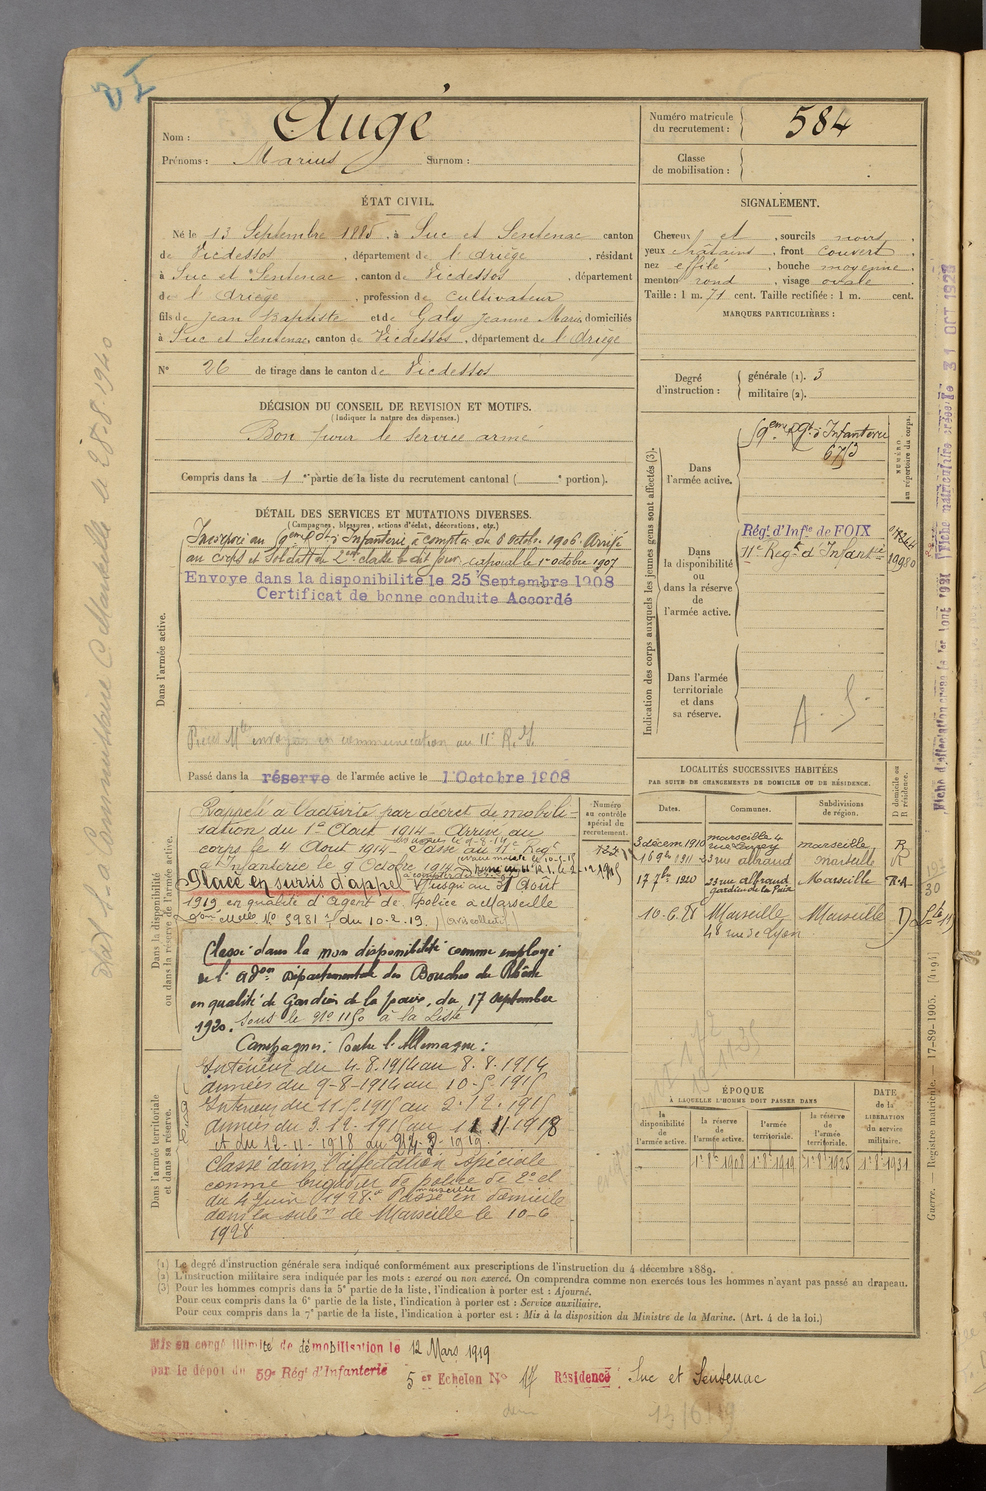 Nom : Augé
Prénoms : Marius Surnom :
Numéro matricule du recrutement : 584
Classe de mobilisation :
ÉTAT CIVIL.
Né le 13 Septembre 1885, à Suc et Sentenac canton
de Vicdessos, département de l'Ariège, résidant
à Suc et Sentenac, canton de Vicdessos, département
de l'Ariège, profession de cultivateur
fils de Jean Baptiste et de Galy Jeanne Marie, domiciliés
à Suc et Sentenac, canton de Vicdessos, département de l'Ariège
N° 26 de tirage dans le canton de Vicdessos
SIGNALEMENT.
Cheveux et, sourcils noirs,
yeux châtains, front couvert,
nez effilé, bouche moyenne,
menton rond, visage ovale
Taille : 1 m. 71 cent. Taille rectifiée : 1 m. cent.
MARQUES PARTICULIÈRES :
Degré d'instruction : générale (1). 3
militaire (2).
DÉCISION DU CONSEIL DE REVISION ET MOTIFS.
(Indiquer la nature des dispenses.)
Bon pour le service armé
Compris dans la 1re partie de la liste du recrutement cantonal ( e portion).
DÉTAIL DES SERVICES ET MUTATIONS DIVERSES.
(Campagnes, blessures, actions d'éclat, décorations, etc.)
Dans l'armée active.
Incorporé au 9eme Rgt d'Infanterie à compter du 8 octobre 1906. Arrivé
au corps et Soldat de 2eme classe le dit jour, caporal le 1er octobre 1907
Envoyé dans la disponibilité le 25 Septembre 1908
Certificat de bonne conduite Accordé
Pièces Mles envoyées en communication au 11e R.I.
Passé dans la réserve de l'armée active le 1 Octobre 1908
Indication des corps auxquels les jeunes gens sont affectés (3).
NUMÉRO au répertoire du corps.
Dans l'armée active.
9eme Rgt d'Infanterie
6753
Dans la disponibilité ou dans la réserve de l'armée active.
Régt d'Infie de FOIX
11e Regt d'Infantie
Dans l'armée territoriale et dans sa réserve.
A. S
Dans la disponibilité ou dans la réserve de l'armée active.
Numéro au contrôle spécial du recrutement.
Rappelé à l'activité par décret de mobili-
sation du 1er Août 1914 – Arrivé au
corps le 4 Août 1914 – Passé au 11e Regt
d'Infanterie le 9 Octobre 1914
Placé en sursis d'appel jusqu'au 31 Août
1919 en qualité d'Agent de Police à Marseille
N° 5981 du 10-2-19
Classé dans la non disponibilité comme employé
de l'adon départementale des Bouches du Rhône
en qualité de Gardien de la paix, du 17 septembre
1920. Sous le N° 1150 à la Liste
Campagnes : Contre l'Allemagne :
Dans l'armée territoriale et dans sa réserve.
Intérieur du 4-8-1914 au 8.8.1914
Armées du 9-8-1914 au 10-5-1915
Intérieur du 11-5-1915 au 2-12-1915
Armées du 3.12-1915 au 11 11 1918
et du 12-11-1918 au
Classé dans l'affectation spéciale
comme brigadier de police de 2e cl
du 4 Juin 1928. Passé en domicile
dans la subon de Marseille le 10-6
1928
LOCALITÉS SUCCESSIVES HABITÉES
PAR SUITE DE CHANGEMENTS DE DOMICILE OU DE RÉSIDENCE.
Dates. Communes. Subdivisions de région. D domicile ou R résidence.
3 décem 1910 Marseille 4 marseille R
16 9bre 1911 23 rue abbaud marseille R
17 7bre 1920 23 rue abbaud Gardien de la Paix Marseille R.A.
10-6-28 Marseille 48 rue de Lyon Marseille D
ÉPOQUE
À LAQUELLE L'HOMME DOIT PASSER DANS
la disponibilité de l'armée active.
la réserve de l'armée active.
l'armée territoriale.
la réserve de l'armée territoriale.
DATE de la LIBÉRATION du service militaire.
1r 8bre 1908 1r 8bre 1919 1r 8bre 1925 1r 8bre 1931
(1) Le degré d'instruction générale sera indiqué conformément aux prescriptions de l'instruction du 4 décembre 1889.
(2) L'instruction militaire sera indiquée par les mots : exercé ou non exercé. On comprendra comme non exercés tous les hommes n'ayant pas passé au drapeau.
(3) Pour les hommes compris dans la 5e partie de la liste, l'indication à porter est : Ajourné.
Pour ceux compris dans la 6e partie de la liste, l'indication à porter est : Service auxiliaire.
Pour ceux compris dans la 7e partie de la liste, l'indication à porter est : Mis à la disposition du Ministre de la Marine. (Art. 4 de la loi.)
Mis en congé illimité de démobilisation le 12 Mars 1919
par le dépôt du 59e Régt d'Infanterie 5 er Echelon N° 17 Résidence : Suc et Sentenac
13/6/19
Guerre. — Registre matricule. — 17-89-1905. [4194]
31 OCT 1928